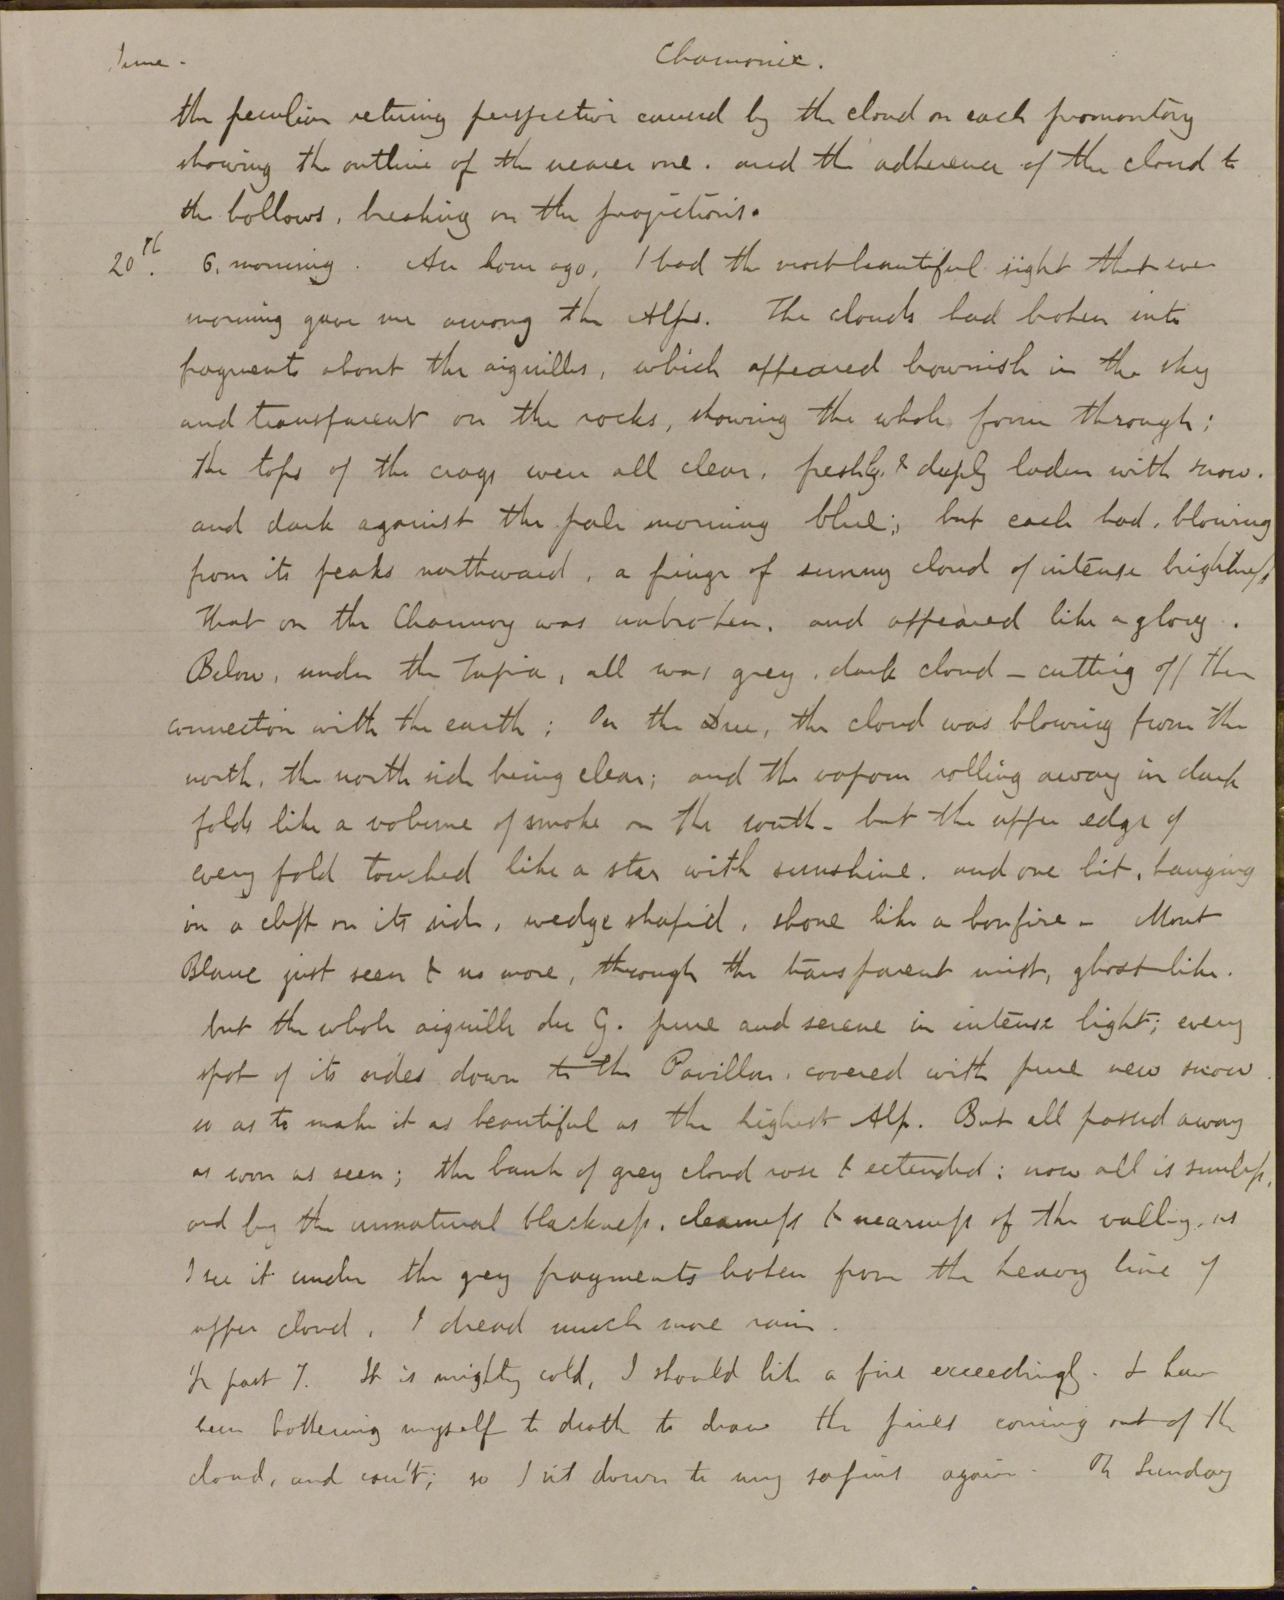 June. Chamonix.
the peculiar retiring perspective caused by the cloud on each promontory
showing the outline of the nearer one. and the adherence of the cloud to
the hollows, breaking on the projections.
20th. 6, morning. An hour ago, I had the most beautiful sight that ever
morning gave me among the Alps. The clouds had broken into
fragments about the aiguilles, which appeared brownish in the sky
and transparent on the rocks, showing the whole form through;
the tops of the crags were all clear, freshly & deeply laden with snow.
and dark against the pale morning blue; but each had, blowing
from its peaks northward, a fringe of sunny cloud of intense brightness
that on the Charmoz was unbroken, and appeared like a glory.
Below, under the Tapia, all was grey, dark cloud - cutting off their
connection with the earth; On the Dru, the cloud was blowing from the
north, the north side being clear; and the vapour rolling away in dark
folds like a volume of smoke on the south - but the upper edge of
every fold touched like a star with sunshine. and one bit, hanging
in a cleft on its side, wedge shaped, shone like a bonfire - Mont
Blanc just seen & no more, through the transparent mist, ghostlike.
but the whole aiguille du G. pure and serene in intense light; every
spot of its sides down to the Pavillon, covered with pure new snow
so as to make it as beautiful as the highest Alp. But all passed away
as soon as seen; the bank of grey cloud rose & extended: now all is sunless,
and by the unnatural blackness, clearness & nearness of the valley, as
I see it under the grey fragments broken from the heavy line of
upper cloud, I dread much more rain.
1/2 past 7. It is mighty cold, I should like a fire exceedingly. I have
been bothering myself to death to draw the pines coming out of the
cloud, and can't; so I sit down to my sapins again. Sunday